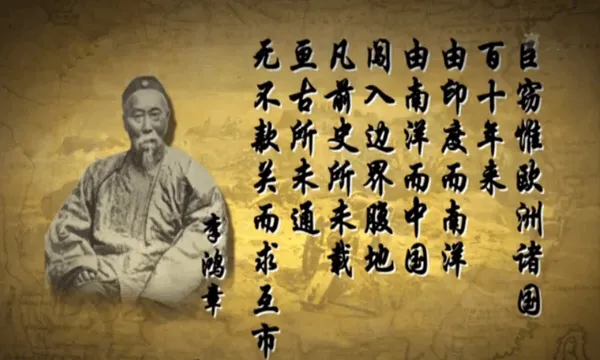 臣窃惟欧洲诸国
百十年来
由印度而南洋
由南洋而中国
闯入边界腹地
凡前史所未载
亘古所未通
无不款关而求互市
李鸿章